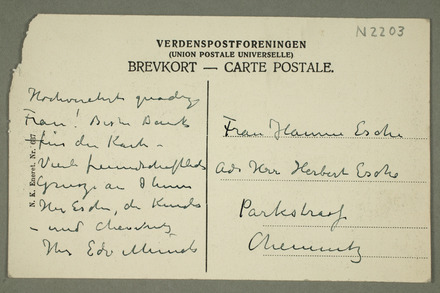 N2203
VERDENSPOSTFORENINGEN
(UNION POSTALE UNIVERSELLE)
BREVKORT — CARTE POSTALE.
N. K. Eneret. Nr.
Hochverehrte gnädige
Frau! Besten Dank
für die Karte –
Viele freundschaftliche
Grüsse an Ihnen
Herr Esche, die Kinder
– und Chemnitz
Ihr Edv Munch
Frau Hanni Esche
Adr Herr Herbert Esche
Parkstrasse
Chemnitz